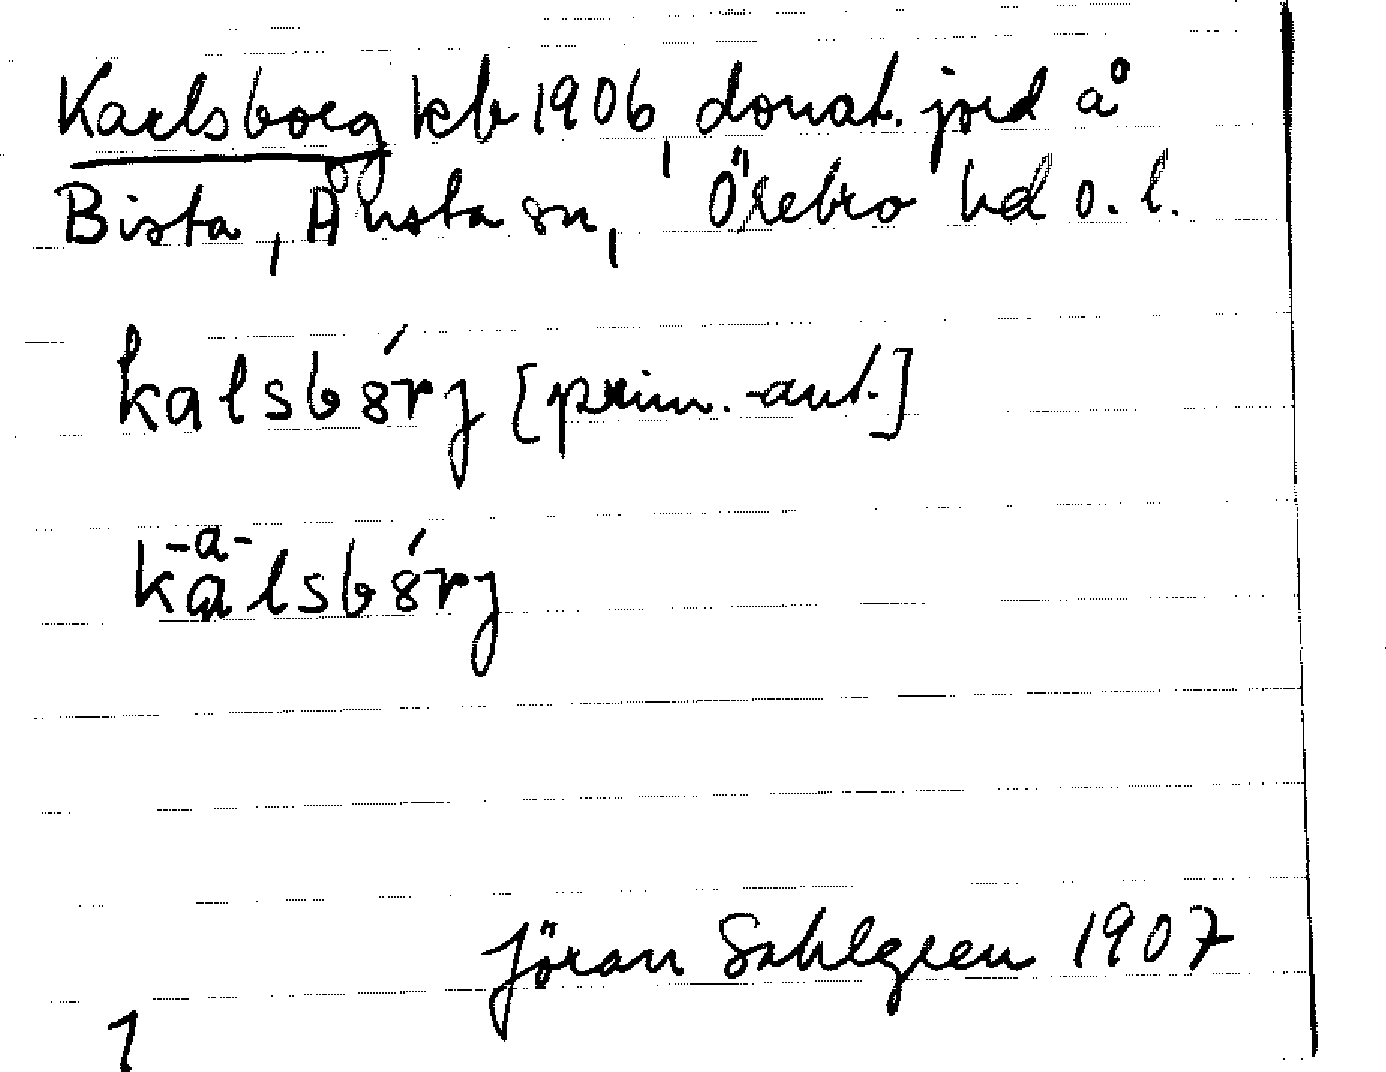 Karlsborg kb 1906, donat. jord å
Bista, Ånsta sn, Örebro hd ö. l.
kalsbȣ́rj [prim.-ant.]
-a-
kalsbȣ́rj
Jöran Sahlgren 1907
1